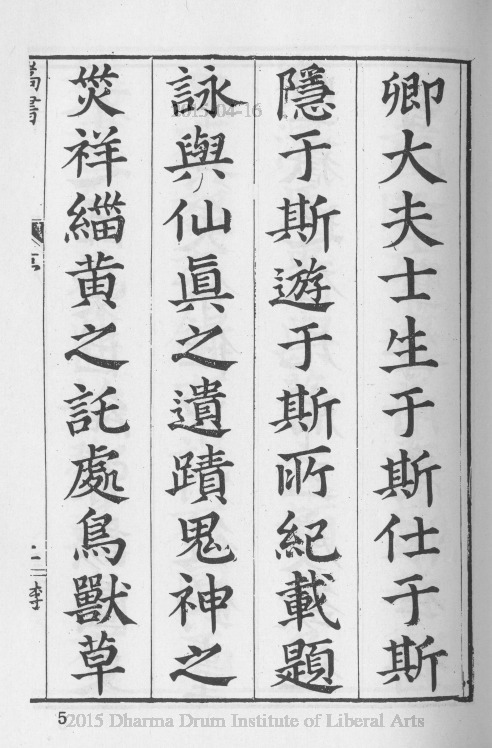 卿大夫士生于斯仕于斯
隱于斯遊于斯所紀載題
詠與仙眞之遺蹟鬼神之
烖祥緇黄之託處鳥獸草
閩書
序
二
李
2015-04-16
5
2015 Dharma Drum Institute of Liberal Arts